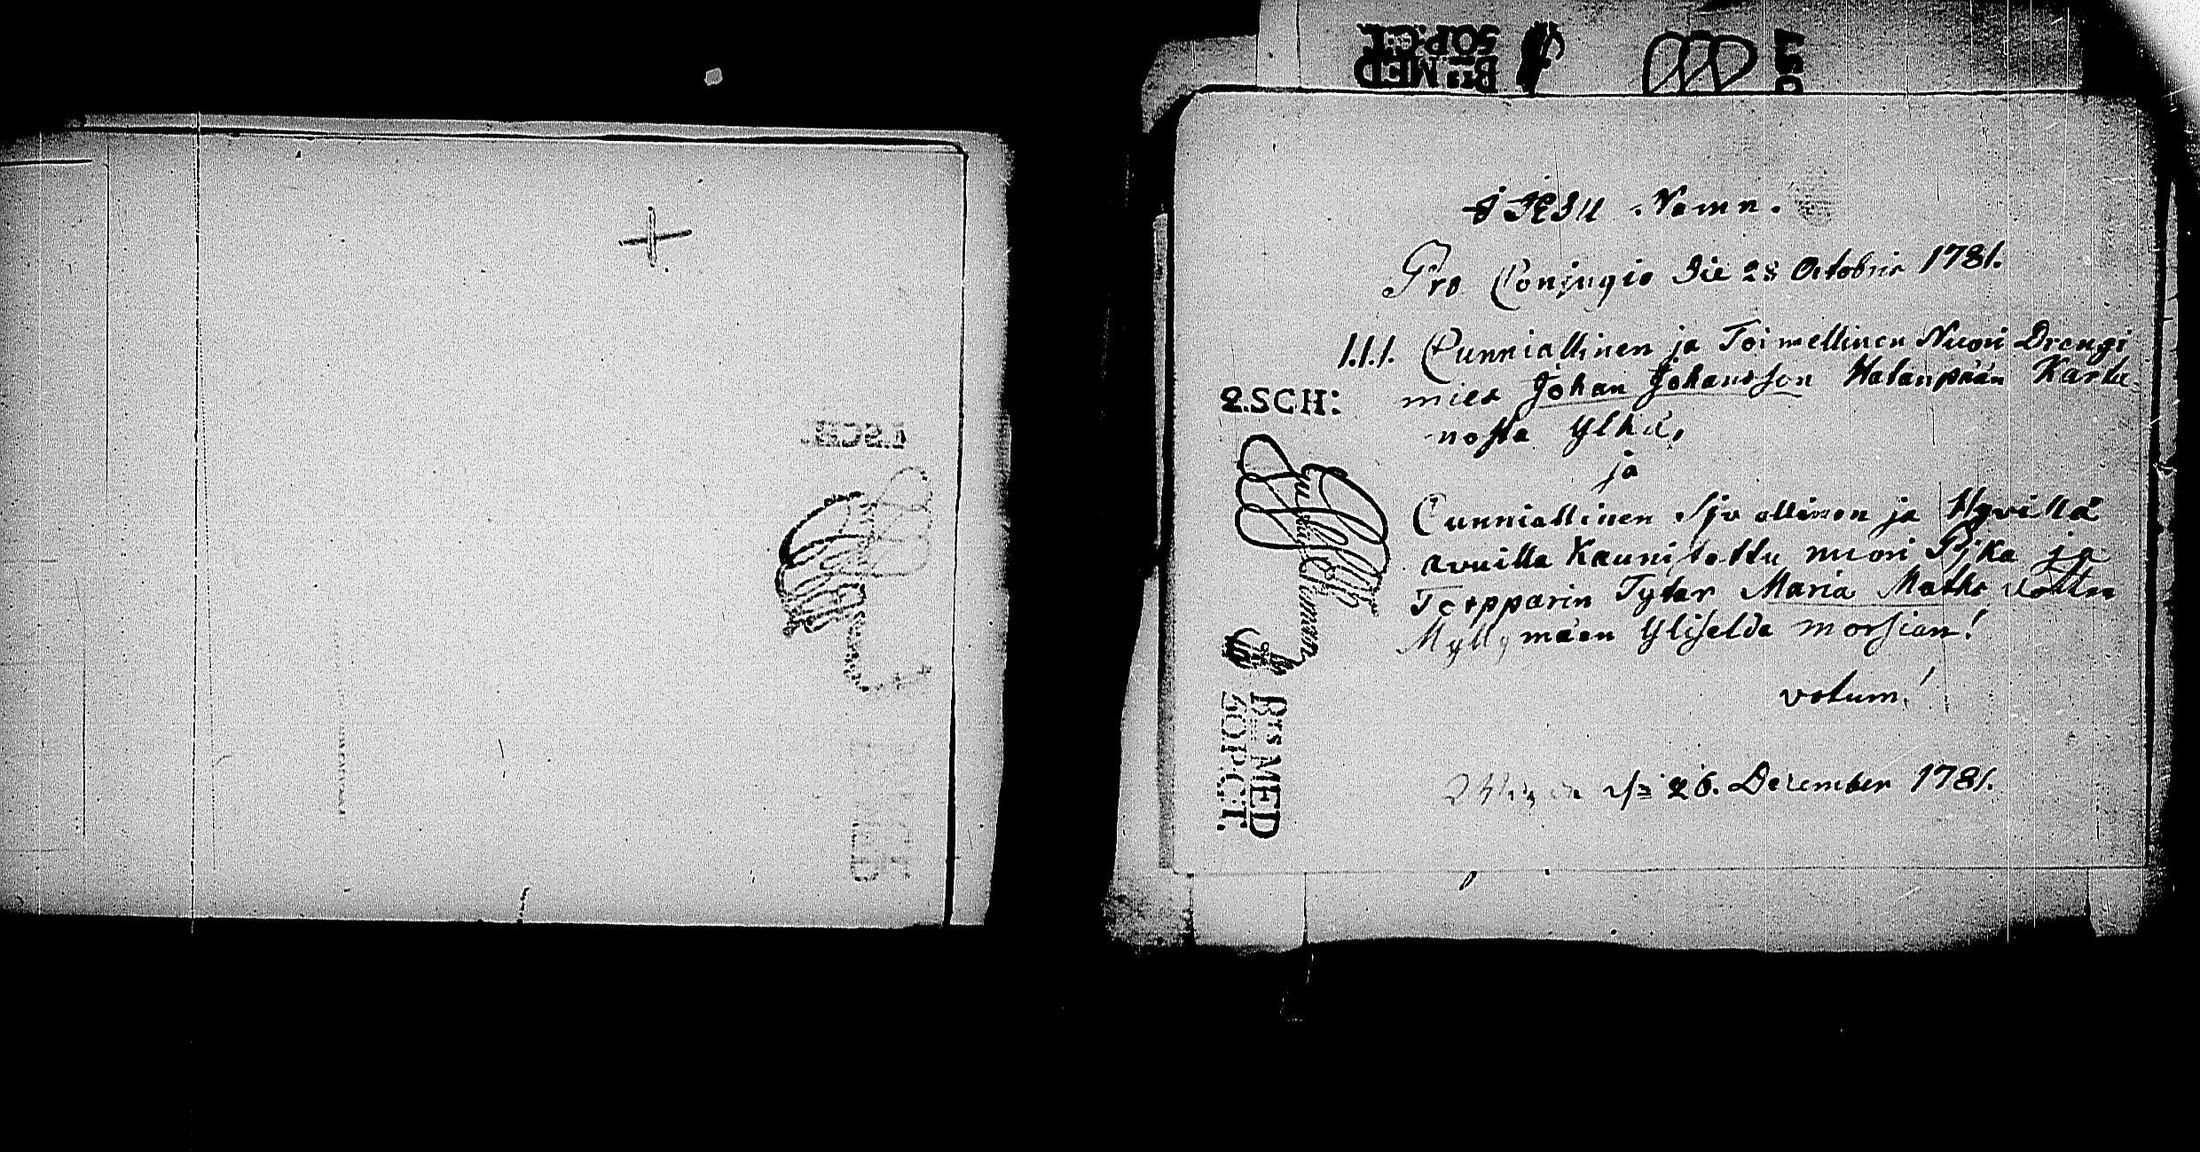 I JESU Namn.
Pro Conjugio Die 28 Octobris 1781.
1.1.1. Cunniallinen ja Toimellinen Nuori Drengi
mies Johan Johansson Hatanpään Karta-
nosta Ylkä,
ja
Cunniallinen Sjv ollinen ja Hyvillä
avuilla Kaunistettu nuori Pjka ja
Torpparin Tytär Maria Maths dotter
Myllymäen Yliseldä morsian!
votum!
26. December 1781.
2.SCH:
Brs MED
50P:C:T.
Brs MED
50P:C:T.